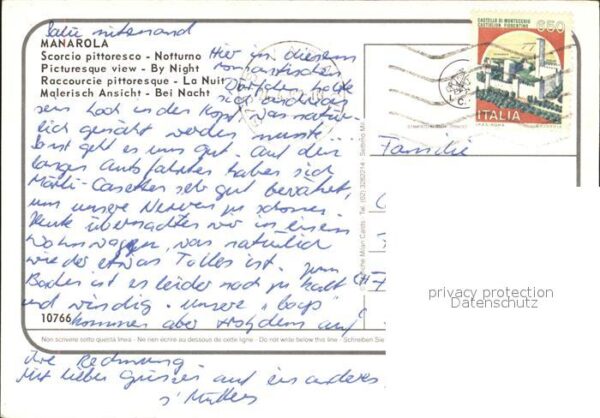 Salü mitenand
MANAROLA
Scorcio pittoresco - Notturno
Picturesque view - By Night
Raccourcie pittoresque - La Nuit
Malerisch Ansicht - Bei Nacht
Hier in diesem
romantischen
Dörfchen holte
sich
sein Loch in den Kopf, was natür-
lich genäht werden musste.
Sonst geht es uns gut. Auf den
langen Autofahrten haben sich
Märli-Casetten sehr gut bewährt,
um unsere Nerven zu schonen.
Heute übernachten wir in einem
Wohnwagen, was natürlich
wieder etwas Tolles ist. Zum
Baden ist es leider noch zu kalt
und windig. Unsere "boys"
kommen aber trotzdem auf
10766
Non scrivere sotto questa linea - Ne rien écrire au dessous de cette ligne - Do not write below this line - Schreiben Sie
ihre Rechnung.
Mit lieben Grüssen auf ein anderes
s'Müllers
CASTELLO DI MONTECCHIO
CASTIGLION FIORENTINO
650
ITALIA
Familie
CH
Milan Cards - Tel. (02) 3282214 - Settimo Mi
privacy protection
Datenschutz